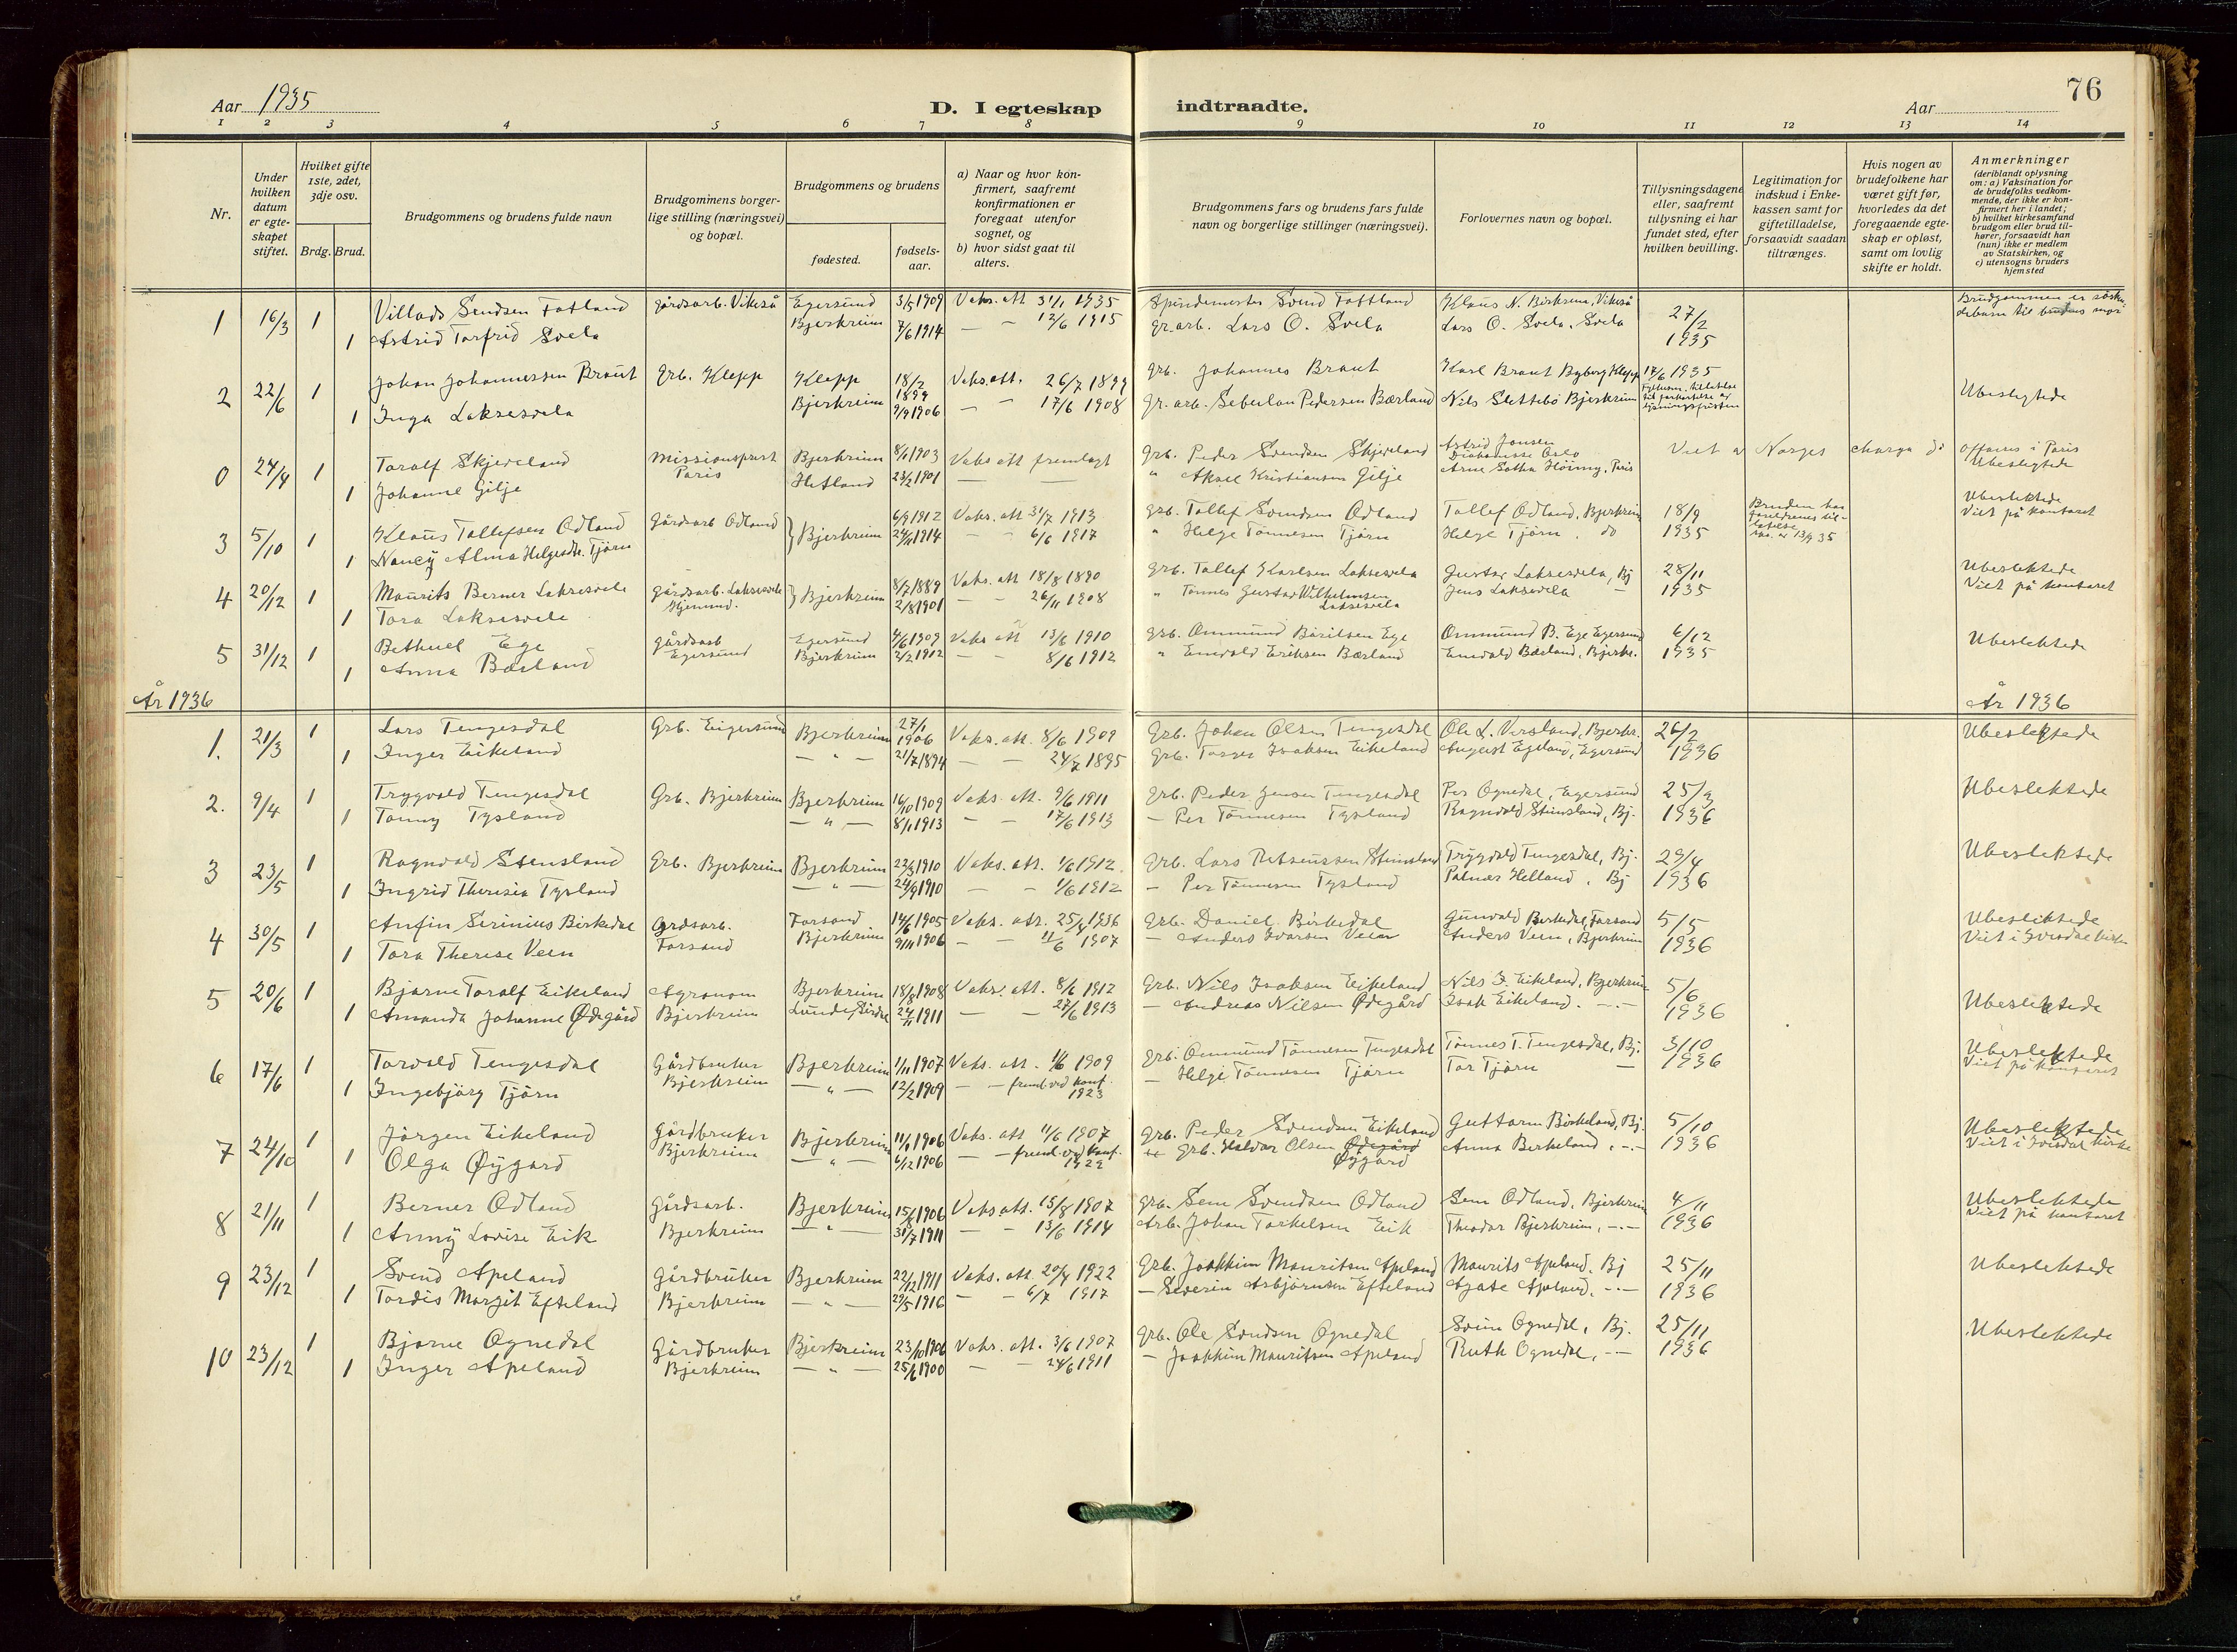 76
Aar 1935
D. I egteskap
indtraadte.
Aar
1 2 3 4 5 6 7 8 9 10 11 12 13 14
Nr.
Under hvilken datum er egte-skapet stiftet.
Hvilket gifte 1ste, 2det, 3dje osv.
Brdg. Brud.
Brudgommens og brudens fulde navn
Brudgommens borger-lige stilling (næringsvei) og bopæl.
Brudgommens og brudens
fødested.
fødsels-aar.
a) Naar og hvor kon-firmert, saafremt konfirmationen er foregaat utenfor sognet, og
b) hvor sidst gaat til alters.
Brudgommens fars og brudens fars fulde navn og borgerlige stillinger (næringsvei).
Forlovernes navn og bopæl.
Tillysningsdagene eller, saafremt tillysning ei har fundet sted, efter hvilken bevilling.
Legitimation for indskud i Enke-kassen samt for giftetilladelse, forsaavidt saadan tiltrænges.
Hvis nogen av brudefolkene har været gift før, hvorledes da det foregaaende egte-skap er opløst, samt om lovlig skifte er holdt.
Anmerkninger (deriblandt oplysning om: a) Vaksination for de brudefolks vedkom-mende, der ikke er kon-firmert her i landet; b) hvilket kirkesamfund brudgom eller brud til-hører, forsaavidt han (hun) ikke er medlem av Statskirken, og c) utensogns bruders hjemsted
1 16/3 1 Villads Sendsen Fatland Gårdsarb. Vikeså Egersund 3/5 1909 Vaks. att 31/1 1935 Svend Fattland Klaus N. Birkrem, Vikeså 27/2 1935 Brudgommen er
1 Astrid Torfrid Svela Bjerkreim 7/6 1914 — - 12/6 1915 gr.arb. Lars O. Svela Lars O. Svela, Svela til brudens mor
2 22/6 1 Johan Johannessen Braut Grb. Klepp Klepp 18/2 1899 Vaks. att. 26/7 1899 Grb. Johannes Braut Karl Braut Byberg Klepp 17/6 1935
1 Inga Laksesvela Bjerkreim 9/9 1906 — - 17/6 1908 Gr. arb. Pedersen Bærland Nils Slettebö Bjerkreim Ubeslegtede
0 24/4 1 Toralf Skjeveland Missionsprest Paris Bjerkreim 8/1 1903 Vaks att fremlagt Grb. Peder Svendsen Skjeveland Astrid Jonsen Oslo Viet Norges i Paris
1 Johanne Gilje Hetland 23/2 1901 — — " Aksel Kristiansen Gilje Arne Paris Ubeslegtede
3 5/10 1 Klaus Tollefsen Odland Gårdsarb Odland Bjerkreim 6/9 1912 Vaks. att 31/7 1913 Grb. Tollef Svendsen Odland Tollef Odland, Bjerkreim 18/9 1935 Bruden har Ubeslektede
1 Nancy Alma Helgesdtr. Tjörn 24/11 1914 - - 6/6 1917 " Helge Tönnesen Tjörn Helge Tjörn, do 13/9 35 Viet på kontoret
4 20/12 1 Maurits Berner Laksesvela Gårdsarb. Laksesvela Bjerkreim 8/7 1889 Vaks. att 18/8 1890 Grb. Tollef Karlsen Laksesvela Gustav Laksesvela, Bj 28/11 1935 Ubeslektede
1 Tora Laksesvela 2/8 1901 — - 26/11 1908 " Tönnes Gustav Wilhelmsen Laksesvela Jens Laksesvela — Viet på kontoret
5 31/12 1 Bethuel Ege Gårdsarb Egersund Egersund 4/6 1909 Vaks att 13/6 1910 Grb. Ommund Ege Ommund B. Ege Egersund 6/12 1935 Ubeslektede
1 Anna Bærland Bjerkreim 2/2 1912 — - 8/6 1912 " Emvald Eriksen Bærland Emvald Bærland, Bjerkr.
År 1936
År 1936
1. 21/3 1 Lars Tengesdal Grb. Eigersund Bjerkreim 27/1 1906 Vaks. att. 8/6 1909 Grb. Johan Olsen Tengesdal Ole L. Versland, Bjerkr. 26/2 1936 Ubeslektede
1 Inger Eikeland — " — 21/7 1894 — — 24/7 1895 Grb. Torger Isaksen Eikeland August Egeland, Egersund
2. 9/4 1 Trygvald Tengesdal Grb. Bjerkreim Bjerkreim 16/10 1909 Vaks. att. 9/6 1911 Grb. Peder Jensen Tengesdal Per Ognedal, Egersund 25/3 1936 Ubeslektede
1 Tonny Tysland — " — 8/1 1913 — - 17/6 1913 — Per Tönnesen Tysland Ragnvald Stensland, Bj.
3 23/5 1 Ragnvald Stensland Grb. Bjerkreim Bjerkreim 22/3 1910 Vaks. att. 1/6 1912. Grb. Lars Stensland Trygvald Tengesdal, Bj. 29/4 1936 Ubeslektede
1 Ingrid Theresia Tysland — " — 24/9 1910 — - 1/6 1912 — Per Tönnesen Tysland Palmar Helland, Bj
4 30/5 1 Anfin Serinius Birkedal Gårdsarb. Forsand Forsand 14/6 1905 Vaks. att. 25/4 1936 Grb. Daniel Birkedal Gunvald Birkedal, Forsand 5/5 1936 Ubeslektede
1 Tora Therese Veen Bjerkreim 9/11 1906 — - 11/6 1907 — Anders Ivarsen Veen Anders Veen, Bjerkreim Viet i Ivesdal kirke
5 20/6 1 Bjarne Toralf Eikeland Agronom Bjerkreim Bjerkreim 18/8 1908 Vaks. att. 8/6 1912 Grb. Nils Isaksen Eikeland Nils I. Eikeland, Bjerkreim 5/6 1936 Ubeslektede
1 Amanda Johanne Ødegård Lunde, Sirdal 24/11 1911 — - 27/6 1913 — Andreas Nilsen Ødegård Isak Eikeland. -.-
6 17/6 1 Torvald Tengesdal Gårdbruker Bjerkreim Bjerkreim 1/11 1907 Vaks. att. 1/6 1909 Grb. Ommund Tönnesen Tengesdal Tönnes T. Tengesdal, Bj. 3/10 1936 Ubeslektede
1 Ingebjörg Tjörn — " — 12/2 1909 — - freml. ved konf. 1923 — Helge Tönnesen Tjörn Tor Tjörn — Viet på kontoret
7 24/10 1 Jörgen Eikeland Gårdbruker Bjerkreim Bjerkreim 11/1 1906 Vaks. att 11/6 1907 Grb. Peder Svendsen Eikeland Guttorm Birkeland, Bj. 5/10 1936 Ubeslektede
1 Olga Øygard — " — 6/12 1906 — - freml. ved konf. 1922 Grb. Haldor Olsen Ødegård Øygard Anna Birkeland, -.- Viet i Ivesdal kirke
8 21/11 1 Berner Odland Gårdsarb. Bjerkreim Bjerkreim 15/8 1906 Vaks att. 15/8 1907 Grb. Sem Svendsen Odland Sem Odland, Bjerkreim 4/11 1936 Ubeslektede
1 Anny Lovise Eik — " — 31/7 1911 — - 13/6 1914 Arb. Johan Torkelsen Eik Theodor Bjerkreim, -.- Viet på kontoret
9 23/12 1 Svend Apeland Gårdbruker Bjerkreim Bjerkreim 22/12 1911 Vaks. att. 20/4 1922 Grb. Joakkim Mauritsen Apeland Maurits Apeland, Bj 25/11 1936 Ubeslektede
1 Tordis Margit Efteland — " — 29/5 1916 — - 6/7 1917 — Severin Asbjörnsen Efteland Agate Apeland, -.-
10 23/12 1 Bjarne Ognedal Gårdbruker Bjerkreim Bjerkreim 23/10 1906 Vaks. att. 3/6 1907 Grb. Ole Svendsen Ognedal Svein Ognedal, Bj. 25/11 1936 Ubeslektede
1 Inger Apeland — " — 25/6 1900 — - 24/6 1911 — Joakkim Mauritsen Apeland Ruth Ognedal, -.-